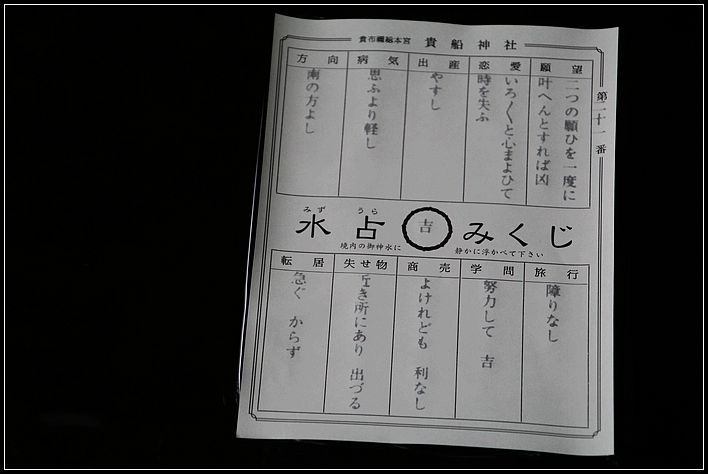 貴布禰総本宮 貴船神社
第二十一番
願望
二つの願ひを一度に
叶へんとすれば凶
恋愛
いろ〱と心まよひて
時を失ふ
出産
やすし
病気
思ふより軽し
方向
南の方よし
みず うら
水占 吉 みくじ
境内の御神水に
静かに浮かべて下さい
旅行
障りなし
学問
努力して 吉
商売
よけれども 利なし
失せ物
き所にあり 出づる
転居
急ぐ からず